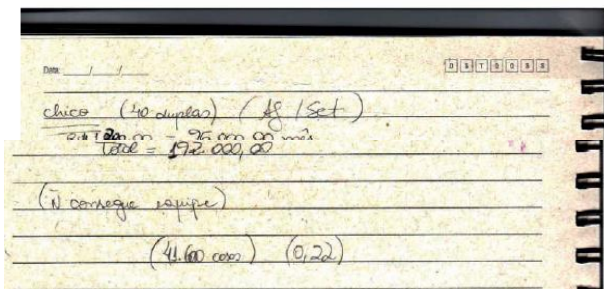 Data: __/__/__
D S T Q Q S S
chico (40 duplas) (Ag / Set)
= 96.000,00 mês
total = 192.000,00
(Ñ consegue equipe)
(41.600 casas) (0,22)